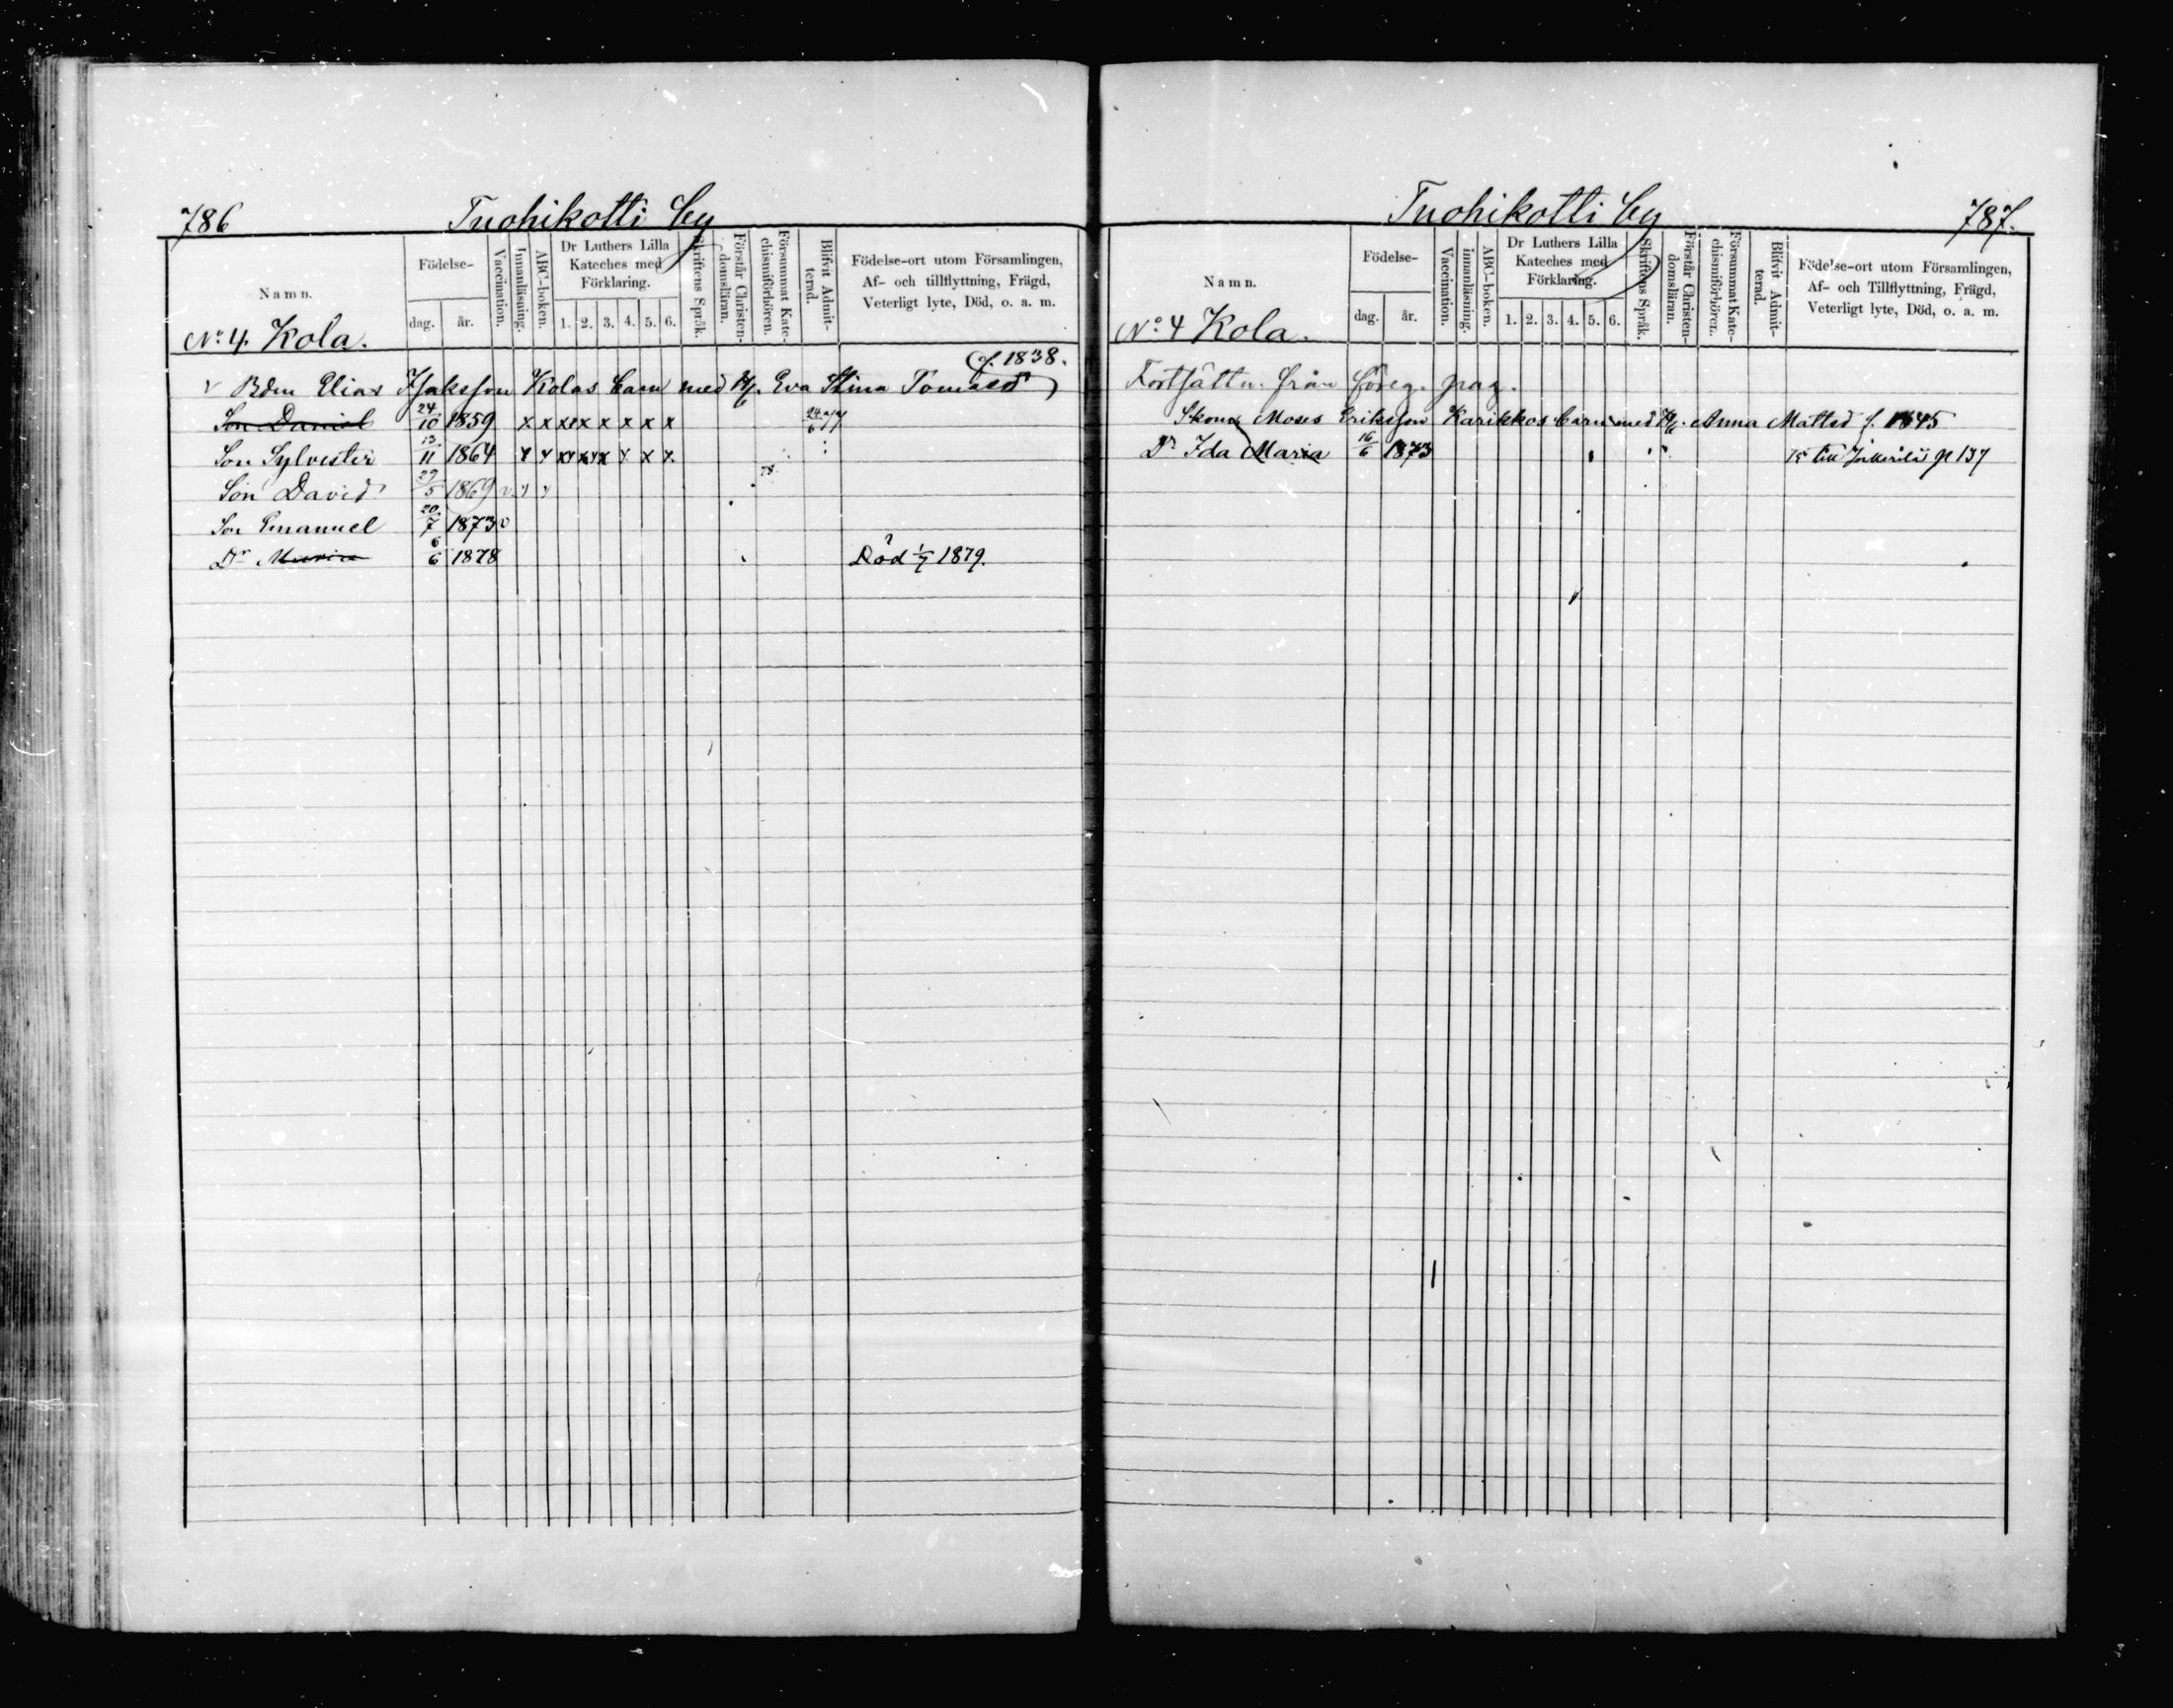 786 Tuohikotti by
Namn. Födelse- dag. år. Vaccination. Innanläsning. ABC-boken. Dr Luthers Lilla Kateches med Förklaring. 1. 2. 3. 4. 5. 6. Skriftens Språk. Förstår Christendomsläran. Försummat Katechismiförhören. Blifvit Admitterad. Födelse-ort utom Församlingen, Af- och tillflyttning, Frägd, Veterligt lyte, Död, o. a. m.
No: 4. Kola.
f. 1838.
v Bdn Elias Isaksson Kolas barn med H. Eva Stina Tomasd
Son Daniel 24/10 1859 x x x x x x x x x
Son Sylvester 13/11 1864 x x x x x x x x
Son David 29/5 1869 v
Son Emanuel 20/7 1873 v
Dr Maria 6/6 1878 Död 1/7 1879.
Tuohikotti by 787.
Namn. Födelse- dag. år. Vaccination. innanläsning. ABC-boken. Dr Luthers Lilla Kateches med Förklaring. 1. 2. 3. 4. 5. 6. Skriftens Språk. Förstår Christendomsläran. Försummat Katechismiförhören. Blifvit Admitterad. Födelse-ort utom Församlingen, Af- och Tillflyttning, Frägd, Veterligt lyte, Död, o. a. m.
No: 4 Kola.
Fortsättn. från föreg. pag.
Skom. Moses Eriksson Karikkos barn med H. Anna Mattsd f. 1845
Dr Ida Maria 16/6 1873 75 till p 137